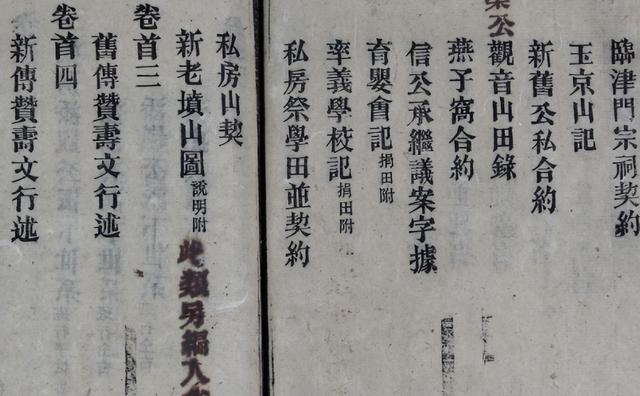 臨津門宗祠契約
玉京山記
新舊公私合約
公
觀音山田錄
燕子窩合約
信公承繼議案字據
育嬰會記捐田附
率義學校記捐田附
私房祭學田並契約
私房山契
新老墳山圖說明附
此類另編入
卷首三
舊傳贊壽文行述
卷首四
新傳贊壽文行述